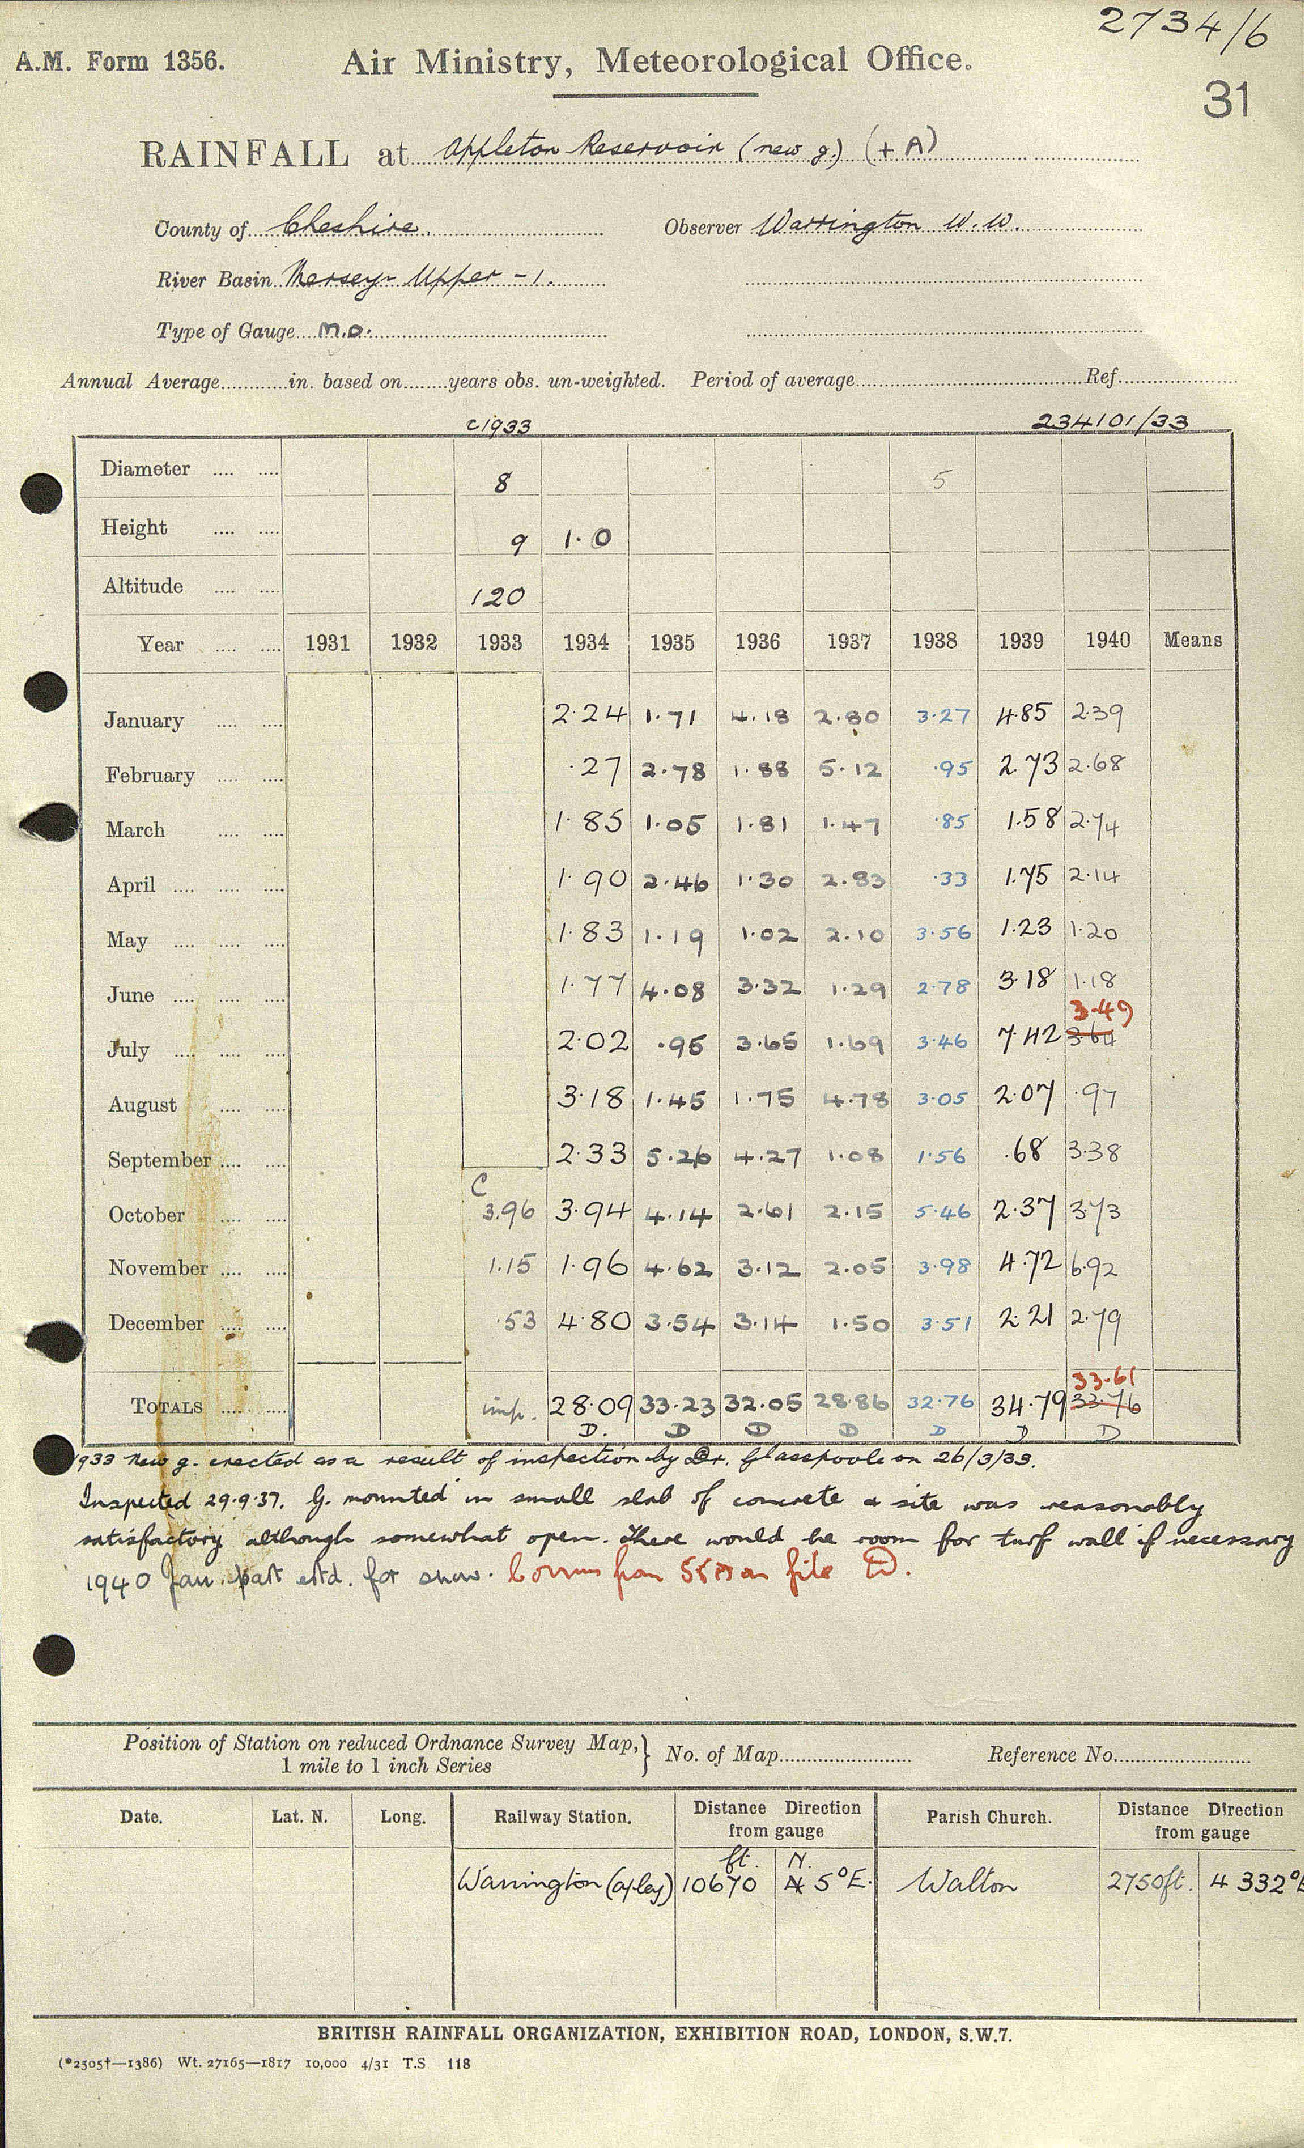 2734/6
A.M. Form 1356. Air Ministry, Meteorological Office.
31
RAINFALL at Appleton Reservoir (new g.) (+ A)
County of Cheshire. Observer Warrington W.W.
River Basin Mersey Upper - 1.
Type of Gauge M.O.
Annual Average in. based on years obs. un-weighted. Period of average Ref.
c1933 234101/33
Diameter 8 5
Height 9 1.0
Altitude 120
Year 1931 1932 1933 1934 1935 1936 1937 1938 1939 1940 Means
January 2.24 1.71 4.18 2.80 3.27 4.85 2.39
February .27 2.78 1.88 5.12 .95 2.73 2.68
March 1.85 1.05 1.81 1.47 .85 1.58 2.74
April 1.90 2.46 1.30 2.83 .33 1.75 2.14
May 1.83 1.19 1.02 2.10 3.56 1.23 1.20
June 1.77 4.08 3.32 1.29 2.78 3.18 1.18
3.49
July 2.02 .95 3.65 1.69 3.46 7.42 3.64
August 3.18 1.45 1.75 4.78 3.05 2.07 .97
September 2.33 5.26 4.27 1.08 1.56 .68 3.38
C
October 3.96 3.94 4.14 2.61 2.15 5.46 2.37 3.73
November 1.15 1.96 4.62 3.12 2.05 3.98 4.72 6.92
December .53 4.80 3.54 3.14 1.50 3.51 2.21 2.79
33.61
TOTALS imp. 28.09 33.23 32.05 28.86 32.76 34.79 33.76
D. D D D D D D
1933 New g. erected as a result of inspection by Dr. Glasspoole on 26/3/33.
Inspected 29.9.37. G. mounted in small slab of concrete & site was reasonably
satisfactory although somewhat open. There would be room for turf wall if necessary
1940 Jan. part estd. for snow. from on file
Position of Station on reduced Ordnance Survey Map, 1 mile to 1 inch Series } No. of Map Reference No.
Date. Lat. N. Long. Railway Station. Distance Direction from gauge Parish Church. Distance Direction from gauge
ft. N.
Warrington 10670 5°E. Walton 2750ft. 332°
BRITISH RAINFALL ORGANIZATION, EXHIBITION ROAD, LONDON, S.W.7.
(*2505†—1386) Wt. 27165—1817 10,000 4/31 T.S 118